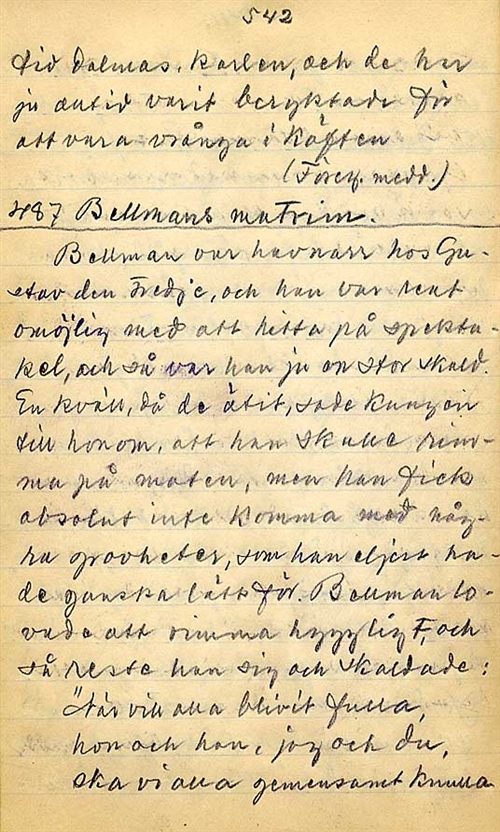 542
tid dalmas. karlen, och de har
ju antid varit beryktade för
att vara vrånga i käften
(Föreg. medd.)
487 Bellmans matrim.
Bellman var hovnarr hos Gu-
stav den Tredje, och han var rent
omöjlig med att hitta på spekta-
kel, och så var han ju en stor skald.
En kväll, då de ätit, sade kungen
till honom, att han skulle rim-
ma på maten, men han fick
absolut inte komma med någ-
ra grovheter, som han eljest ha-
de ganska lätt för. Bellman lo-
vade att rimma hyggligt, och
så reste han sig och skaldade:
"När vill alla blivit fulla,
hon och han, jag och du,
ska vi alla gemensamt knulla